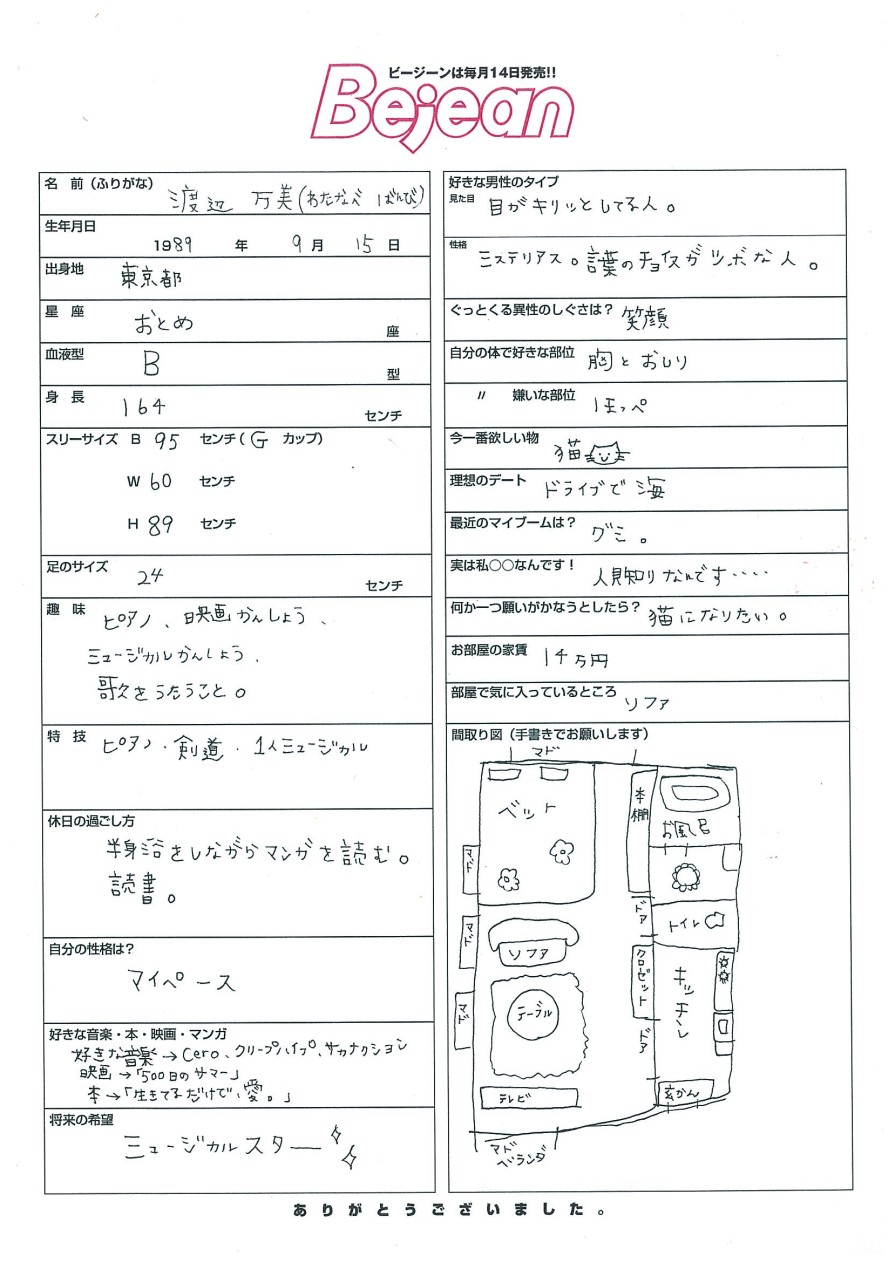 ビージーンは毎月14日発売!!
Bejean
名 前(ふりがな) 渡辺 万美(わたなべ ばんび)
生年月日
1989 年 9月 15日
出身地 東京都
星 座 おとめ 座
血液型 B 型
身 長 164 センチ
スリーサイズ B 95 センチ(G カップ)
W 60 センチ
H 89 センチ
足のサイズ 24 センチ
趣 味 ピアノ、映画かんしょう、
ミュージカルかんしょう、
歌をうたうこと。
特 技 ピアノ・剣道・1人ミュージカル
休日の過ごし方
半身浴をしながらマンガを読む。
読書。
自分の性格は?
マイペース
好きな音楽・本・映画・マンガ
好きな音楽→Cero、クリープハイプ、サカナクション
映画→「500日のサマー」
本→「生きてるだけで、愛。」
将来の希望
ミュージカルスター
好きな男性のタイプ
見た目 目がキリッとしてる人。
性格 ミステリアス。言葉のチョイスがツボな人。
ぐっとくる異性のしぐさは? 笑顔
自分の体で好きな部位 胸とおしり
〃 嫌いな部位 ほっぺ
今一番欲しい物 猫
理想のデート ドライブで海
最近のマイブームは? グミ。
実は私○○なんです! 人見知りなんです‥‥
何か一つ願いがかなうとしたら? 猫になりたい。
お部屋の家賃 14万円
部屋で気に入っているところ ソファ
間取り図(手書きでお願いします)
マド
ベット
本棚
お風呂
マド
ドア
トイレ
マド
ソファ
クロゼット
キッチン
マド
テーブル
ドア
テレビ
玄かん
マド
ベランダ
ありがとうございました。